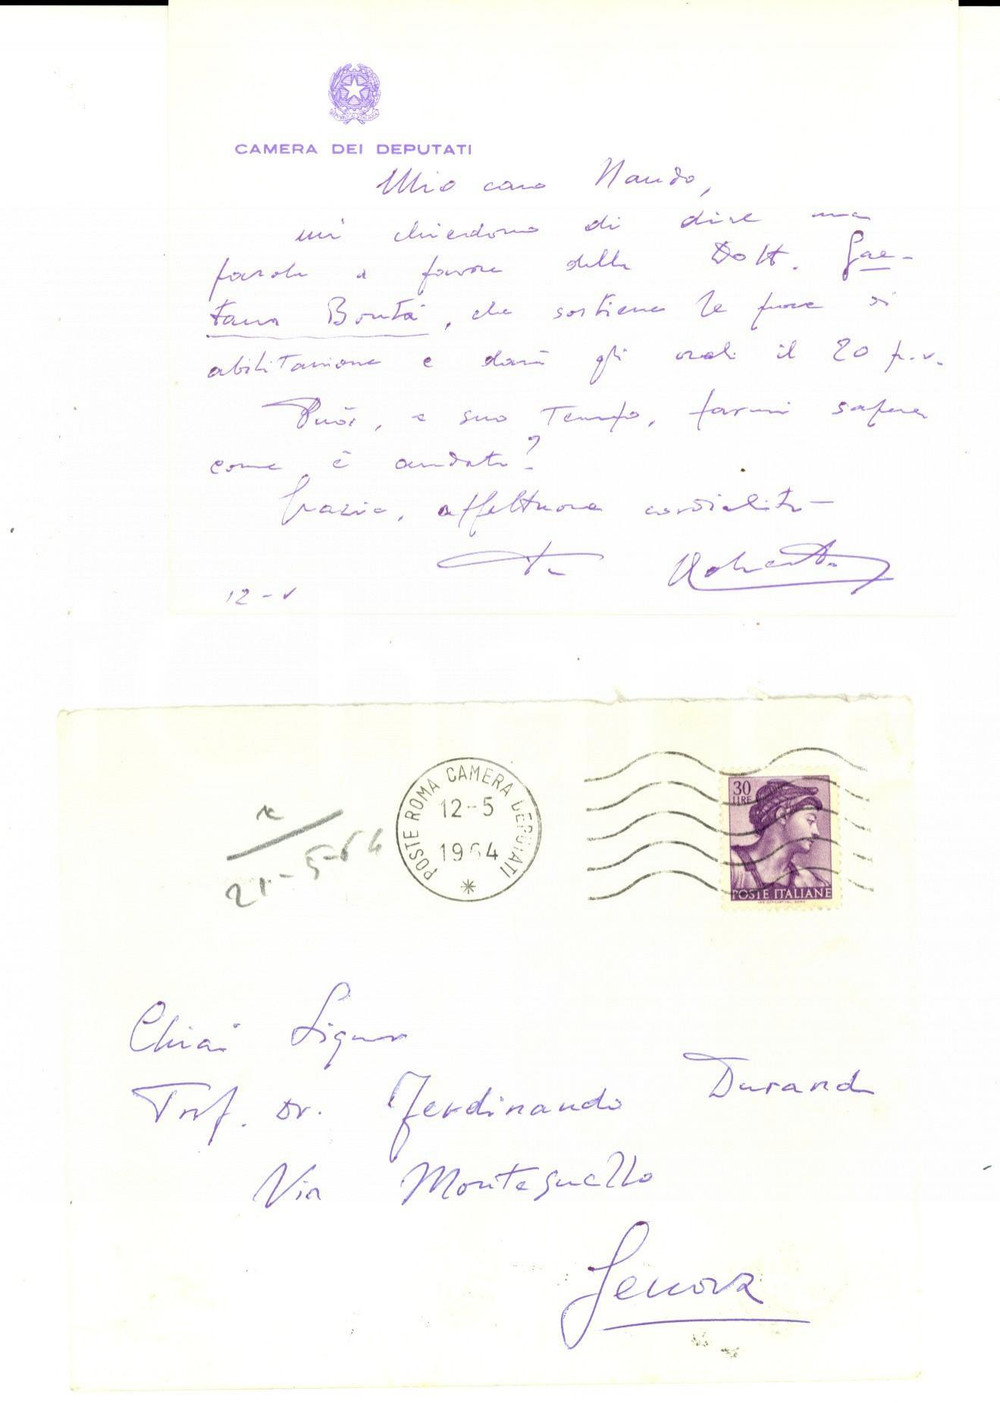 CAMERA DEI DEPUTATI
Mio caro Nando,
mi chiedono di dire una
parola a favore della Dott. Gae-
tana Bontà, che sostiene le prove di
abilitazione e darà gli orali il 20 p.v.
Puoi, a suo tempo, farmi sapere
come è andata?
Grazie, affettuosa cordialità -
Tuo Roberto
12-V
POSTE ROMA CAMERA DEPUTATI
12-5
1964
30
LIRE
POSTE ITALIANE
21-5-64
Chiar Signor
Prof. Dr. Ferdinando Durand
Via Montesuello
Genova